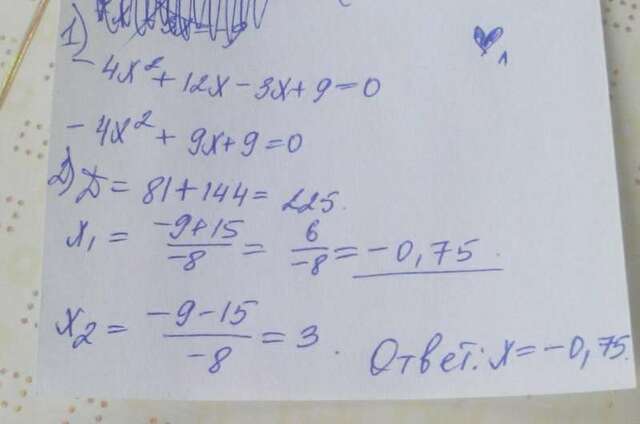 1)
-4x² + 12x - 3x + 9 = 0
-4x² + 9x + 9 = 0
2) D = 81 + 144 = 225.
x₁ = (-9+15)/(-8) = 6/(-8) = -0,75.
x₂ = (-9-15)/(-8) = 3.
Ответ: x = -0,75.